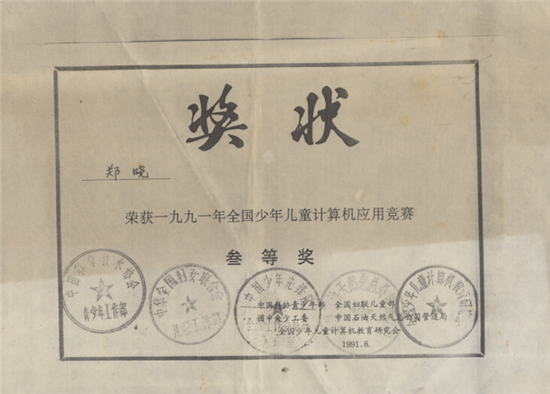 奖状
郑晓
荣获一九九一年全国少年儿童计算机应用竞赛
叁等奖
中国科协青少年部 全国妇联儿童部
团中央少工委 中国石油天然气总公司管道局
全国少年儿童计算机教育研究会
1991.8.
青少年工作部
中华全国妇女联合会